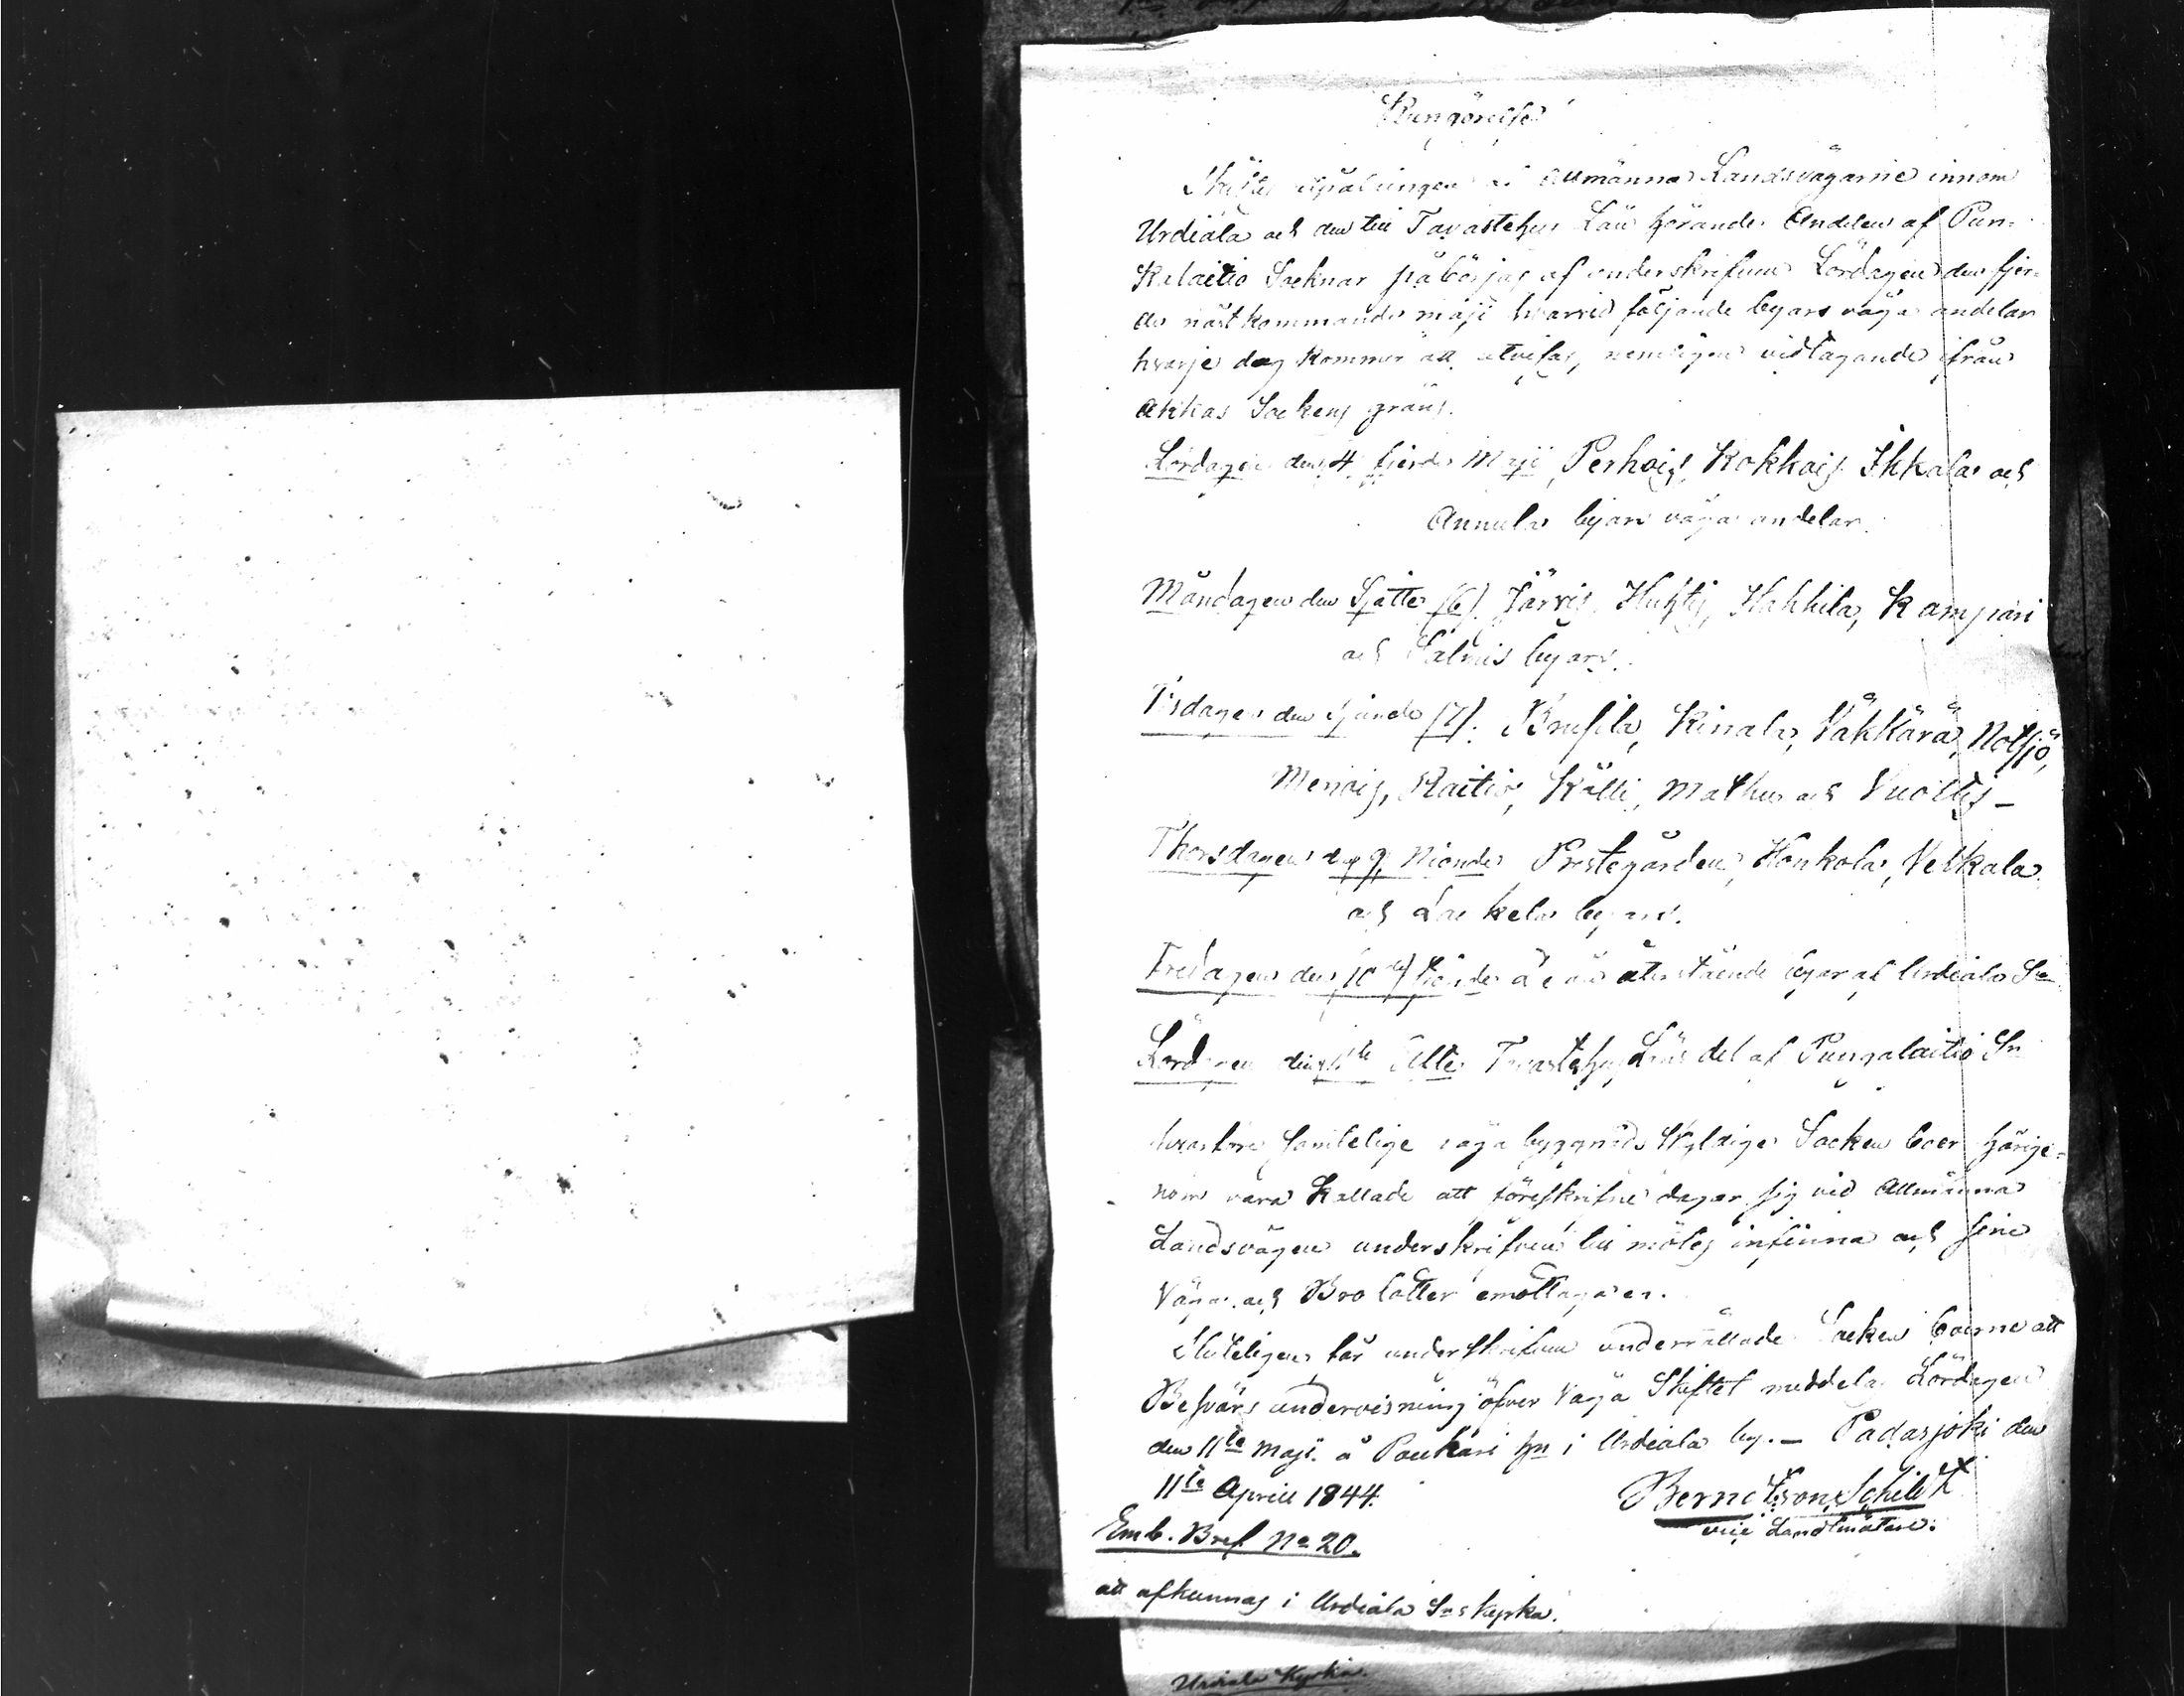 Kungörelse
Skiftes utpålningen af Allmänna Landsvägarne innom
Urdiala och den till Tavastehus Län hörande Andelen af Pun-
kalaitio Socknar påbörjas af underskrifven Lördagen den fjer-
de nästkommande Maji hvarvid följande byars väga andelar
hvarje dag kommer att utvisas, nemligen vidtagande ifrån
Akkas Sockens gräns.
Lördagen den 4 fjerde Maji, Perhois, Kokkois, Ikkala och
Annula byars väga andelar.
Måndagen den Sjätte (6). Järvis, Huhtis, Hakkila, Kampari
och Salmis byars.
Tisdagen den Sjunde (7). Brusila, Kinala, Vahkärä, Notsjö,
Menois, Raitio, Källi, Mathus och Vuoltis –
Thorsdagen den 9 Nionde Prestegården, Honkola, Velkala
och Laukela byars.
Fredagen den 10de tionde återstående byar af Urdiala Sn
Lördagen den 11te Elfte Tavastehus Läns del af Pungalaitio Sn
hvarföre samtelige väga byggnads skyldige Socken boer härige-
nom vara kallade att föreskrifne dagar sig vid Allmänna
Landsvägen underskrifven till mötes infinna och sine
Väga och Bro lotter emottaga.
Sluteligen får underskrifven underrätta de Socken boerne att
Besvärs undervisning öfver Väga Skiftet meddelas Lördagen
den 11te Maji å Paukari hn i Urdiala by. – Padasjoki den
11te Aprill 1844.
Berndtson Schildt
vice Landtmätare.
Emb. Bref No 20.
att afkunnas i Urdiala Sns kyrka.
Urdiala Kyrka.